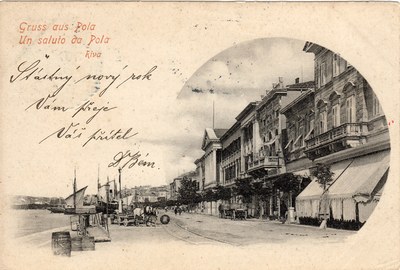 Gruss aus Pola
Un saluto da Pola
Riva
Šťastný nový rok
Vám přeje
Váš přítel